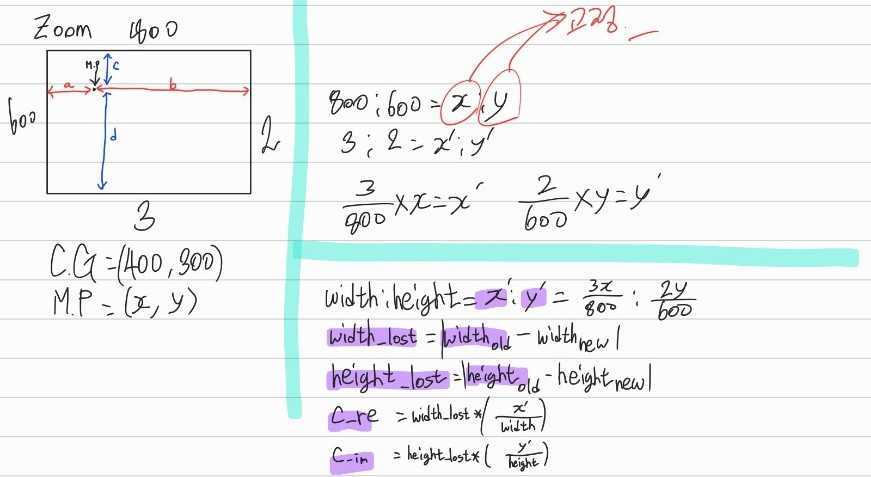 Zoom 800
M.P
c
a
b
600
d
2
3
C.G=(400,300)
M.P=(x, y)
800:600=x:y
3:2=x':y'
3/800 × x=x' 2/600 × y=y'
width:height=x':y' = 3x/800 : 2y/600
width_lost = |width old - width new|
height_lost=|height old - height new|
C_re = width_lost*(x'/width)
C_in = height_lost*(y'/height)